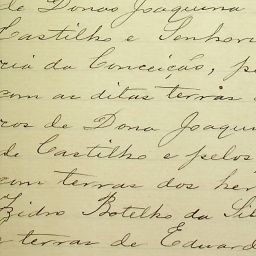 de Donas Joaquina
Castilho e Senhori
ria da Conceição, pe
com as ditas terras
ros de Dona Joaqui
de Castilho e pelos
com terras dos her
Izidro Botelho da Sil
e terras de Eduard